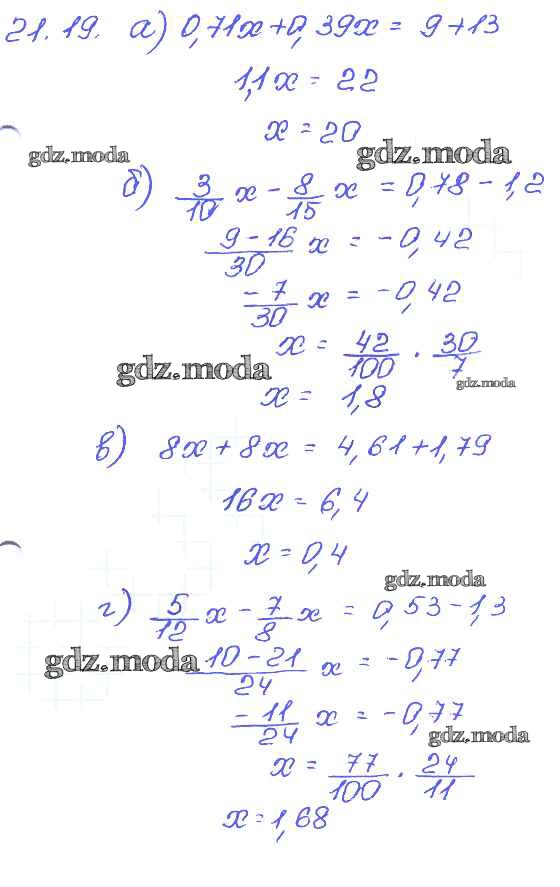 21.19. а) 0,71x+0,39x = 9+13
1,1x = 22
x = 20
gdz.moda
gdz.moda
б) 3/10 x - 8/15 x = 0,78 - 1,2
9-16/30 x = -0,42
-7/30 x = -0,42
x = 42/100 · 30/7
gdz.moda
gdz.moda
x = 1,8
в) 8x + 8x = 4,61+1,79
16x = 6,4
x = 0,4
gdz.moda
г) 5/12 x - 7/8 x = 0,53-1,3
gdz.moda
10-21/24 x = -0,77
-11/24 x = -0,77
gdz.moda
x = 77/100 · 24/11
x = 1,68